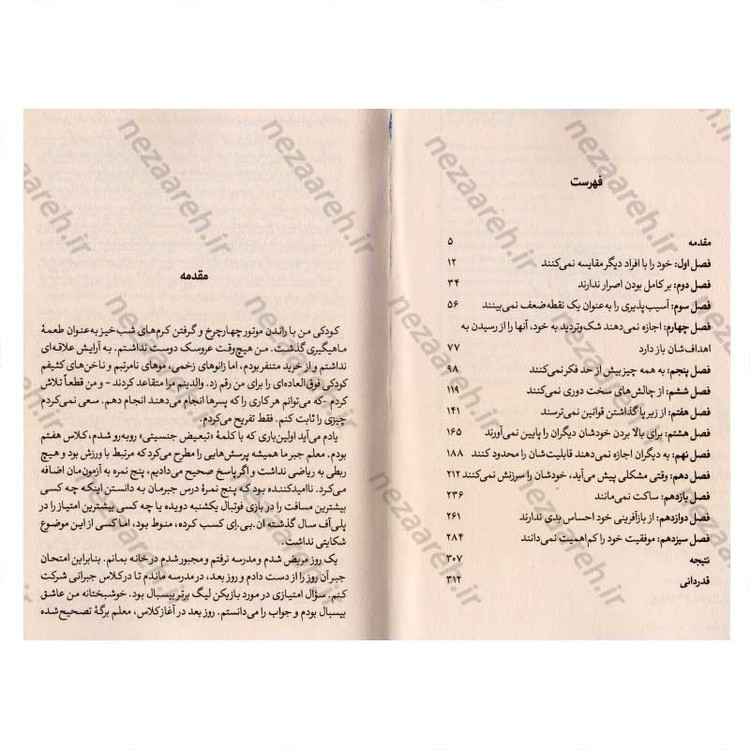 فهرست
مقدمه ۵
فصل اول: خود را با افراد دیگر مقایسه نمی‌کنند ۱۲
فصل دوم: بر کامل بودن اصرار ندارند ۳۴
فصل سوم: آسیب‌پذیری را به‌عنوان یک نقطه‌ضعف نمی‌بینند ۵۶
فصل چهارم: اجازه نمی‌دهند شک‌وتردید به خود، آنها را از رسیدن به
اهداف‌شان باز دارد ۷۷
فصل پنجم: به همه چیز بیش از حد فکر نمی‌کنند ۹۸
فصل ششم: از چالش‌های سخت دوری نمی‌کنند ۱۱۹
فصل هفتم: از زیر پا گذاشتن قوانین نمی‌ترسند ۱۴۱
فصل هشتم: برای بالا بردن خودشان دیگران را پایین نمی‌آورند ۱۶۵
فصل نهم: به دیگران اجازه نمی‌دهند قابلیت‌شان را محدود کنند ۱۸۸
فصل دهم: وقتی مشکلی پیش می‌آید، خودشان را سرزنش نمی‌کنند ۲۱۲
فصل یازدهم: ساکت نمی‌مانند ۲۳۶
فصل دوازدهم: از بازآفرینی خود احساس بدی ندارند ۲۶۱
فصل سیزدهم: موفقیت خود را کم اهمیت نمی‌دانند ۲۸۴
نتیجه ۳۰۷
قدردانی ۳۱۲
مقدمه
کودکی من با راندن موتور چهارچرخ و گرفتن کرم‌های شب خیز به‌عنوان طعمهٔ
ماهیگیری گذشت. من هیچ‌وقت عروسک دوست نداشتم. به آرایش علاقه‌ای
نداشتم و از خرید متنفر بودم، اما زانوهای زخمی، موهای نامرتبم و ناخن‌های کثیفم
کودکی فوق‌العاده‌ای را برای من رقم زد. والدینم مرا متقاعد کردند - و من قطعاً تلاش
کردم -که می‌توانم هر کاری را که پسرها انجام می‌دهند انجام دهم. سعی نمی‌کردم
چیزی را ثابت کنم. فقط تفریح می‌کردم.
یادم می‌آید اولین‌باری که با کلمهٔ «تبعیض جنسیتی» روبه‌رو شدم، کلاس هفتم
بودم. معلم جبر ما همیشه پرسش‌هایی را مطرح می‌کرد که مرتبط با ورزش بود و هیچ
ربطی به ریاضی نداشت و اگر پاسخ صحیح می‌دادیم، پنج نمره به آزمون‌مان اضافه
می‌کرد. ناامیدکننده بود که پنج نمرهٔ درس جبرمان به دانستن اینکه چه کسی
بیشترین مسافت را در بازی فوتبال یکشنبه دویده یا چه کسی بیشترین امتیاز را در
پلی‌آف سال گذشته ان.بی.اِی کسب کرده، منوط بود، اما کسی از این موضوع
شکایتی نداشت.
یک روز مریض شدم و مدرسه نرفتم و مجبور شدم در خانه بمانم. بنابراین امتحان
جبر آن روز را از دست دادم و روز بعد، در مدرسه ماندم تا در کلاس جبرانی شرکت
کنم. سؤال امتیازی در مورد بازیکن لیگ برتر بیسبال بود. خوشبختانه من عاشق
بیسبال بودم و جواب را می‌دانستم. روز بعد در آغاز کلاس، معلم برگهٔ تصحیح‌شده
nezaareh.ir
nezaareh.ir
nezaareh.ir
nezaareh.ir
nezaareh.ir
nezaareh.ir
nezaareh.ir
nezaareh.ir
nezaareh.ir
nezaareh.ir